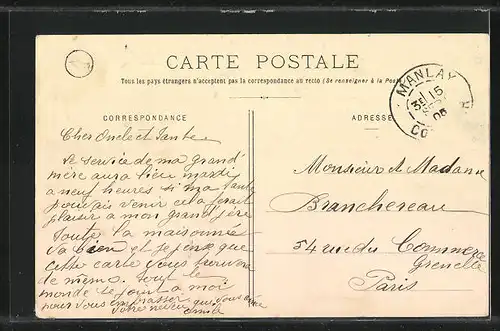 CARTE POSTALE
Tous les pays étrangers n'acceptent pas la correspondance au recto (Se renseigner à la Poste)
CORRESPONDANCE
ADRESSE
MANLAY
3E 15
05
CO
Cher Oncle et Tante
le service de ma grand'
mère aura lieu mardi
a neuf heures si ma Tante
pouvais venir cela ferait
plaisir a mon grand père
Toute la maisonnée
va bien et je pense que
cette carte vous trouvera
de meme. Tout le
monde se joint a moi
pour vous embrasser
Votre neveu qui vous aime
Emile
Monsieur et Madame
Branchereau
54 rue du Commerce
Grenelle
Paris